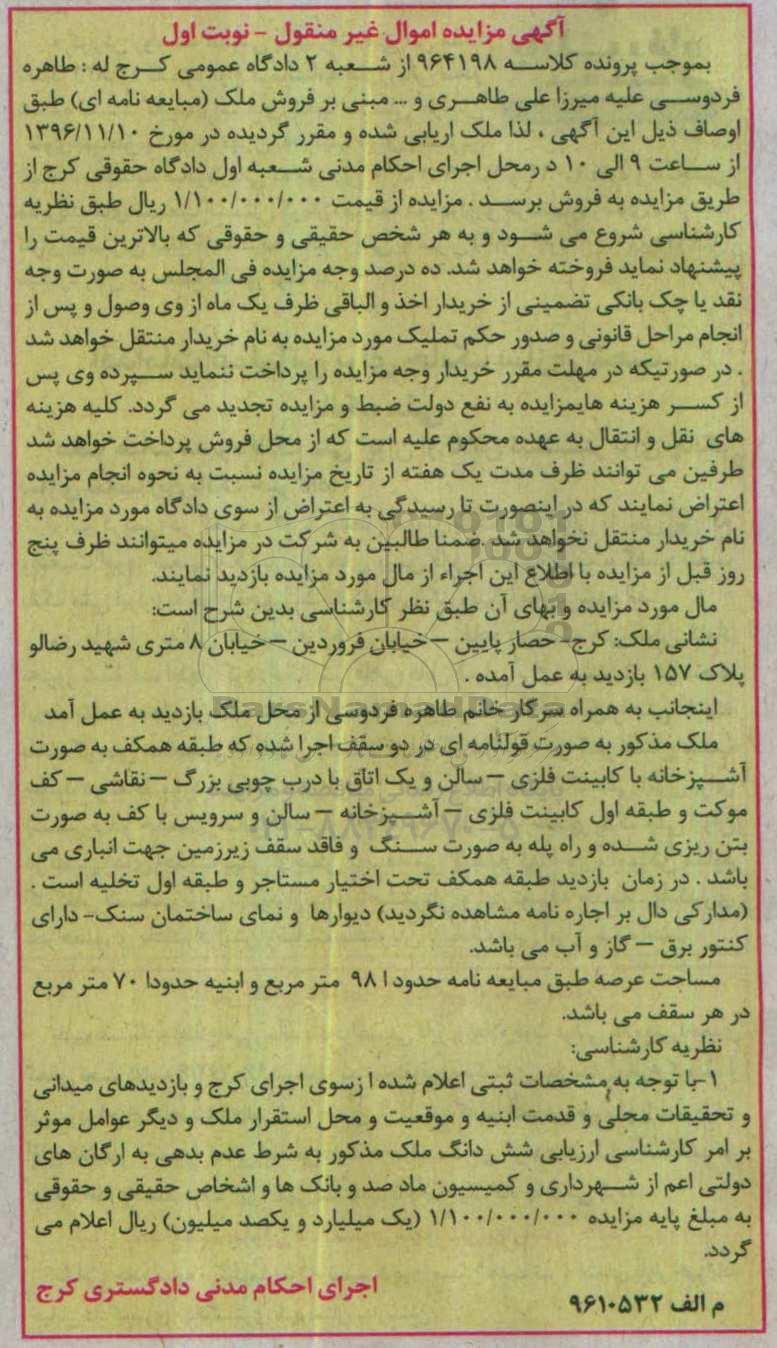 آگهی مزایده اموال غیر منقول - نوبت اول
بموجب پرونده کلاسه ۹۶۴۱۹۸ از شعبه ۲ دادگاه عمومی کرج له : طاهره
فردوسی علیه میرزا علی طاهری و ... مبنی بر فروش ملک (مبایعه نامه ای) طبق
اوصاف ذیل این آگهی ، لذا ملک اریابی شده و مقرر گردیده در مورخ ۱۳۹۶/۱۱/۱۰
از ساعت ۹ الی ۱۰ د رمحل اجرای احکام مدنی شعبه اول دادگاه حقوقی کرج از
طریق مزایده به فروش برسد . مزایده از قیمت ۱/۱۰۰/۰۰۰/۰۰۰ ریال طبق نظریه
کارشناسی شروع می شود و به هر شخص حقیقی و حقوقی که بالاترین قیمت را
پیشنهاد نماید فروخته خواهد شد. ده درصد وجه مزایده فی المجلس به صورت وجه
نقد یا چک بانکی تضمینی از خریدار اخذ و الباقی ظرف یک ماه از وی وصول و پس از
انجام مراحل قانونی و صدور حکم تملیک مورد مزایده به نام خریدار منتقل خواهد شد
. در صورتیکه در مهلت مقرر خریدار وجه مزایده را پرداخت ننماید سپرده وی پس
از کسر هزینه هایمزایده به نفع دولت ضبط و مزایده تجدید می گردد. کلیه هزینه
های نقل و انتقال به عهده محکوم علیه است که از محل فروش پرداخت خواهد شد
طرفین می توانند ظرف مدت یک هفته از تاریخ مزایده نسبت به نحوه انجام مزایده
اعتراض نمایند که در اینصورت تا رسیدگی به اعتراض از سوی دادگاه مورد مزایده به
نام خریدار منتقل نخواهد شد .ضمنا طالبین به شرکت در مزایده میتوانند ظرف پنج
روز قبل از مزایده با اطلاع این اجراء از مال مورد مزایده بازدید نمایند.
مال مورد مزایده و بهای آن طبق نظر کارشناسی بدین شرح است:
نشانی ملک: کرج- حصار پایین – خیابان فروردین – خیابان ۸ متری شهید رضالو
پلاک ۱۵۷ بازدید به عمل آمده .
اینجانب به همراه سرکار خانم طاهره فردوسی از محل ملک بازدید به عمل آمد
ملک مذکور به صورت قولنامه ای در دو سقف اجرا شده که طبقه همکف به صورت
آشپزخانه با کابینت فلزی – سالن و یک اتاق با درب چوبی بزرگ – نقاشی – کف
موکت و طبقه اول کابینت فلزی – آشپزخانه – سالن و سرویس با کف به صورت
بتن ریزی شده و راه پله به صورت سنگ و فاقد سقف زیرزمین جهت انباری می
باشد . در زمان بازدید طبقه همکف تحت اختیار مستاجر و طبقه اول تخلیه است .
(مدارکی دال بر اجاره نامه مشاهده نگردید) دیوارها و نمای ساختمان سنک- دارای
کنتور برق – گاز و آب می باشد.
مساحت عرصه طبق مبایعه نامه حدود ا ۹۸ متر مربع و ابنیه حدودا ۷۰ متر مربع
در هر سقف می باشد.
نظریه کارشناسی:
۱-با توجه به مشخصات ثبتی اعلام شده ا زسوی اجرای کرج و بازدیدهای میدانی
و تحقیقات محلی و قدمت ابنیه و موقعیت و محل استقرار ملک و دیگر عوامل موثر
بر امر کارشناسی ارزیابی شش دانگ ملک مذکور به شرط عدم بدهی به ارگان های
دولتی اعم از شهرداری و کمیسیون ماد صد و بانک ها و اشخاص حقیقی و حقوقی
به مبلغ پایه مزایده ۱/۱۰۰/۰۰۰/۰۰۰ (یک میلیارد و یکصد میلیون) ریال اعلام می
گردد.
اجرای احکام مدنی دادگستری کرج
م الف ۹۶۱۰۵۳۲